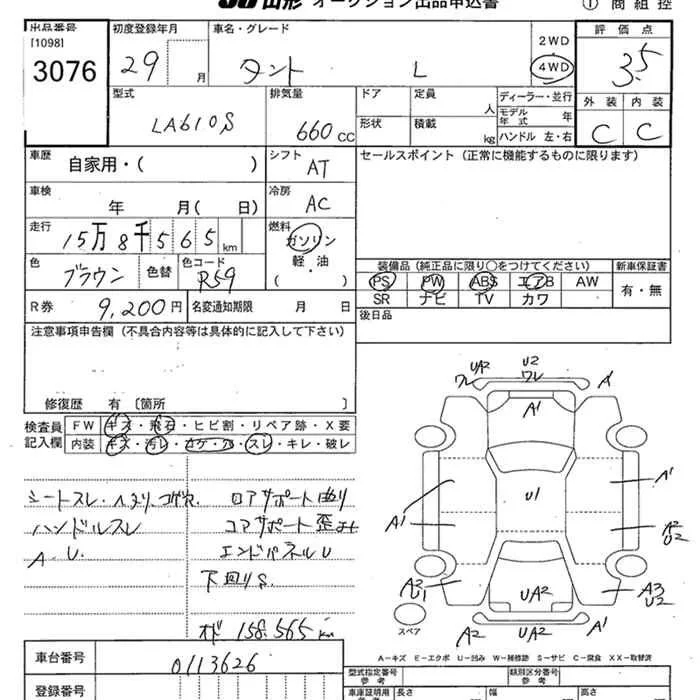 JU山形 オークション出品申込書 ① 商組控
出品番号 [1098] 3076
初度登録年月 29 月
車名・グレード タント L
2WD 4WD
評価点 3.5
外装 内装
C C
型式 LA610S
排気量 660cc
ドア 定員 人
形状 積載 kg
ディーラー・並行
モデル年式 年
ハンドル 左・右
車歴 自家用・( )
シフト AT
セールスポイント (正常に機能するものに限ります)
車検 年 月( 日)
冷房 AC
走行 15万8千565km
燃料 ガソリン
軽・油
( )
色 ブラウン 色替 色コード R59
装備品 (純正品に限り○をつけてください) 新車保証書
PS PW ABS エアB AW 有・無
SR ナビ TV カワ
R券 9,200円 名変通知期限 月 日
後日品
注意事項申告欄 (不具合内容等は具体的に記入して下さい)
修復歴 有 〔箇所 〕
検査員 FW キズ・飛石・ヒビ割・リペア跡・X要
記入欄 内装 キズ・汚レ・コゲ・穴・スレ・キレ・破レ
シートスレ・ヘタリ、コゲ穴. ロアサポート曲り
ハンドルスレ コアサポート歪み
A U. エンドパネルU
下回りS.
オド 158,565km
UA2 U2
ワレ ワレ A
A1
A1 U1 A1
A2
U2
A2
U1 UA2 A3
U2
スペア A2 UA2 A1
A-キズ E-エクボ U-凹み W-補修跡 S-サビ C-腐食 XX-取替済
車台番号 0113626
型式指定番号 類別区分番号
参考 参考
登録番号
車庫証明用 長さ 幅 高さ
参考